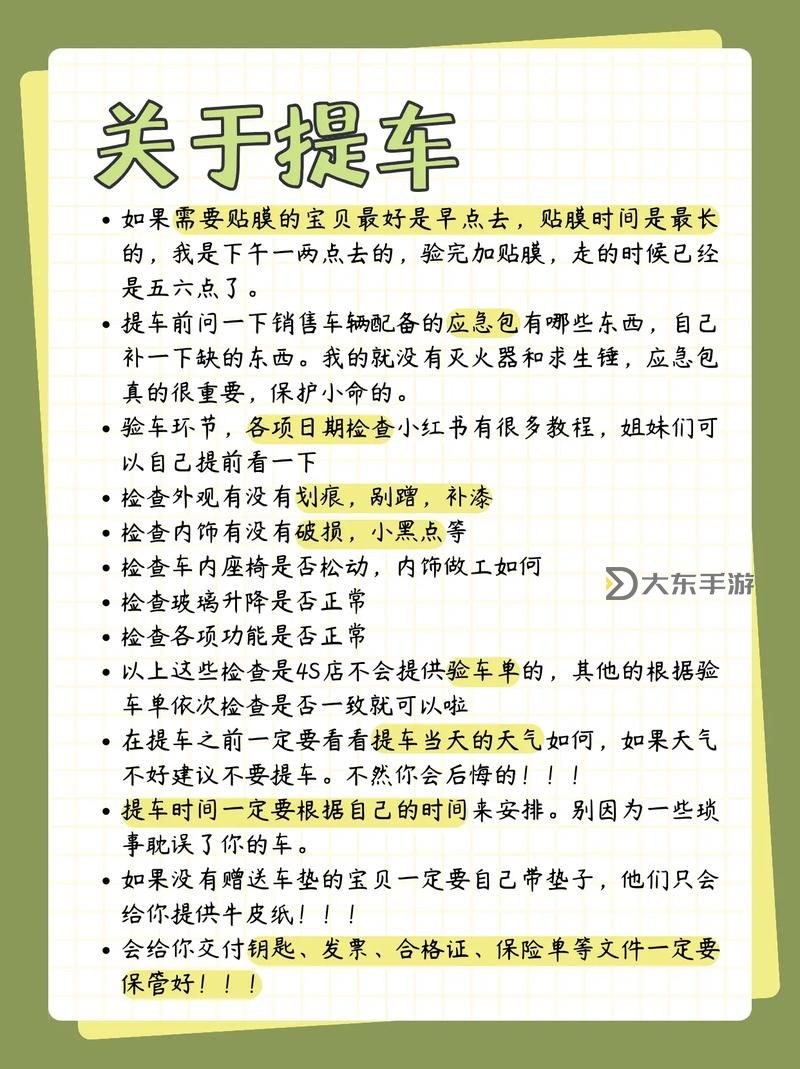 关于提车
• 如果需要贴膜的宝贝最好是早点去，贴膜时间是最长
的，我是下午一两点去的，验完加贴膜，走的时候已经
是五六点了。
• 提车前问一下销售车辆配备的应急包有哪些东西，自己
补一下缺的东西。我的就没有灭火器和求生锤，应急包
真的很重要，保护小命的。
• 验车环节，各项日期检查小红书有很多教程，姐妹们可
以自己提前看一下
• 检查外观有没有划痕，剐蹭，补漆
• 检查内饰有没有破损，小黑点等
• 检查车内座椅是否松动，内饰做工如何
• 检查玻璃升降是否正常
• 检查各项功能是否正常
• 以上这些检查是4S店不会提供验车单的，其他的根据验
车单依次检查是否一致就可以啦
• 在提车之前一定要看看提车当天的天气如何，如果天气
不好建议不要提车。不然你会后悔的！！！
• 提车时间一定要根据自己的时间来安排。别因为一些琐
事耽误了你的车。
• 如果没有赠送车垫的宝贝一定要自己带垫子，他们只会
给你提供牛皮纸！！！
• 会给你交付钥匙、发票、合格证、保险单等文件一定要
保管好！！！
大东手游